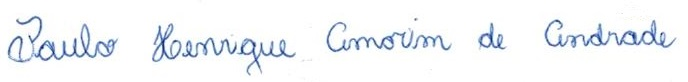 Paulo Henrique Amorim de Andrade